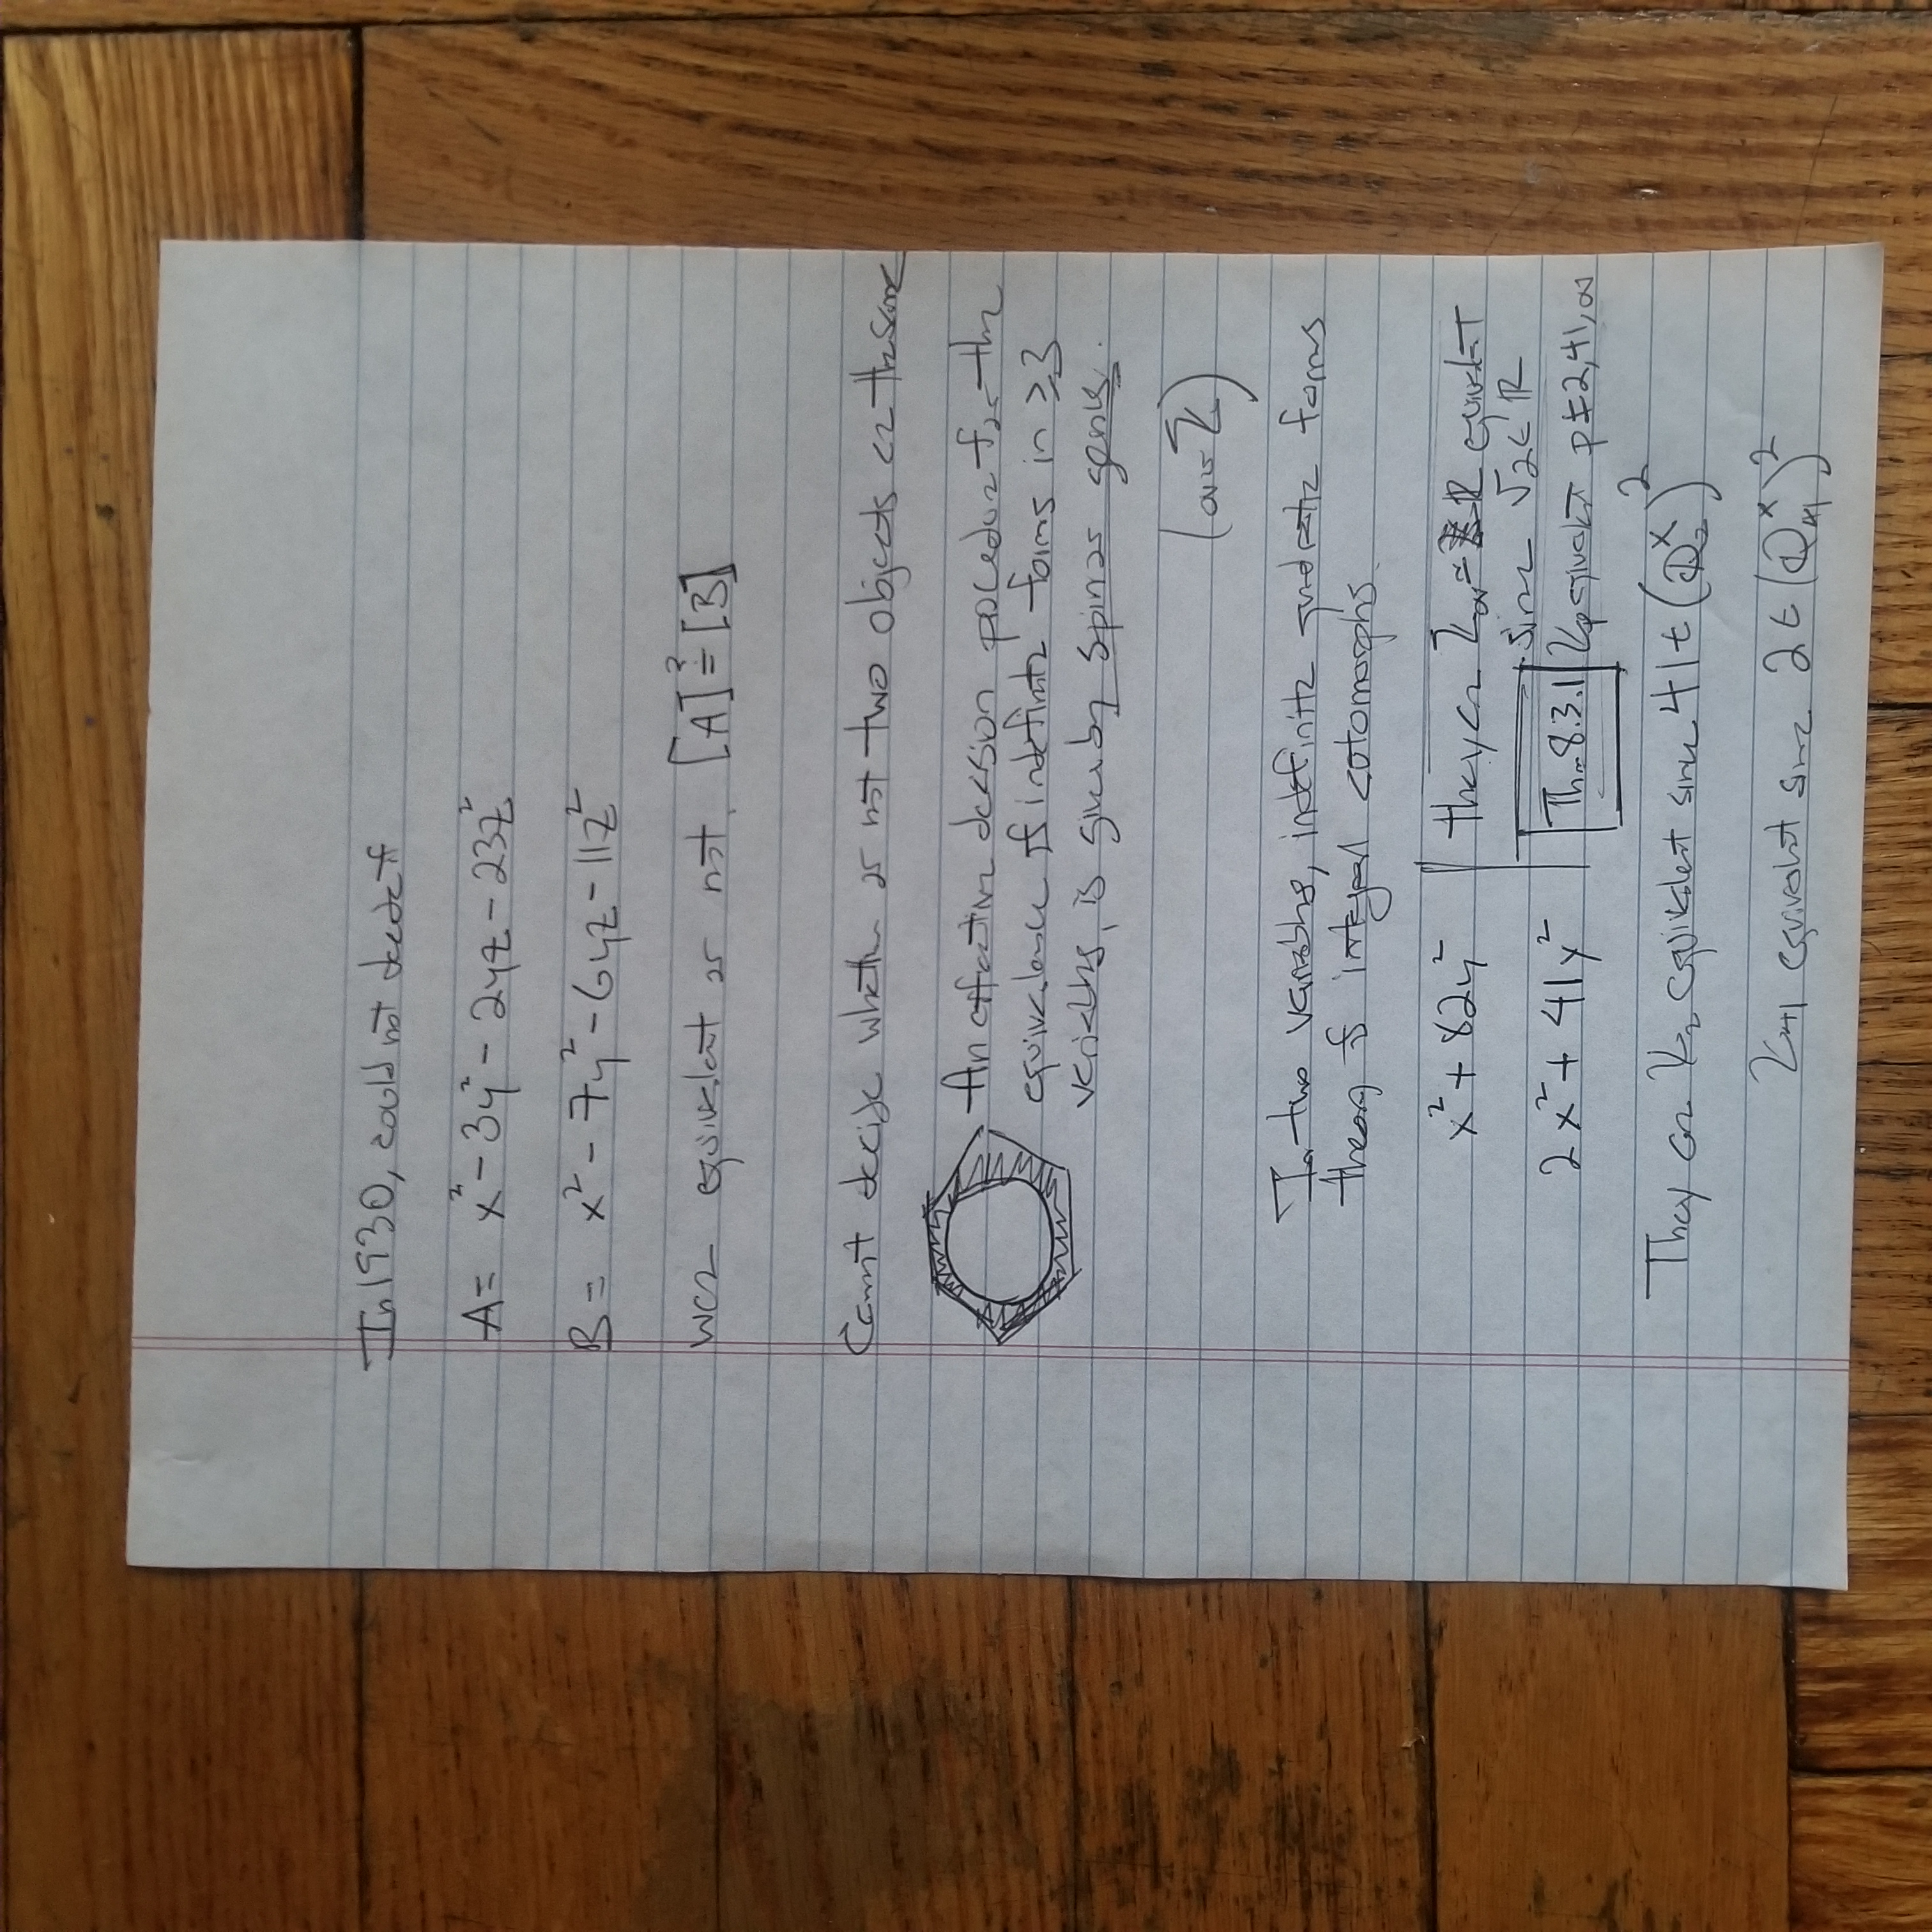 In 1930, could not decide if
A = x² - 3y² - 2yz - 23z²
B = x² - 7y² - 6yz - 11z²
were equivalent or not. [A] ≟ [B]
Can't decide whether or not two objects are the same
An effective decision procedure for the
equivalence of indefinite forms in ≥3
variables, is given by spinor genus.
(over ℤ)
In two variables, indefinite quadratic forms
theory of integral automorphs.
x² + 82y²
2x² + 41y²
They are ℤ∞ = ℝ equivalent
since √2 ∈ ℝ
Thm 8.3.1
ℤₚ equivalent p ≠ 2, 41, ∞
They are ℤ₂ equivalent since 41 ∈ (ℚ₂ˣ)²
ℤ₄₁ equivalent since 2 ∈ (ℚ₄₁ˣ)²